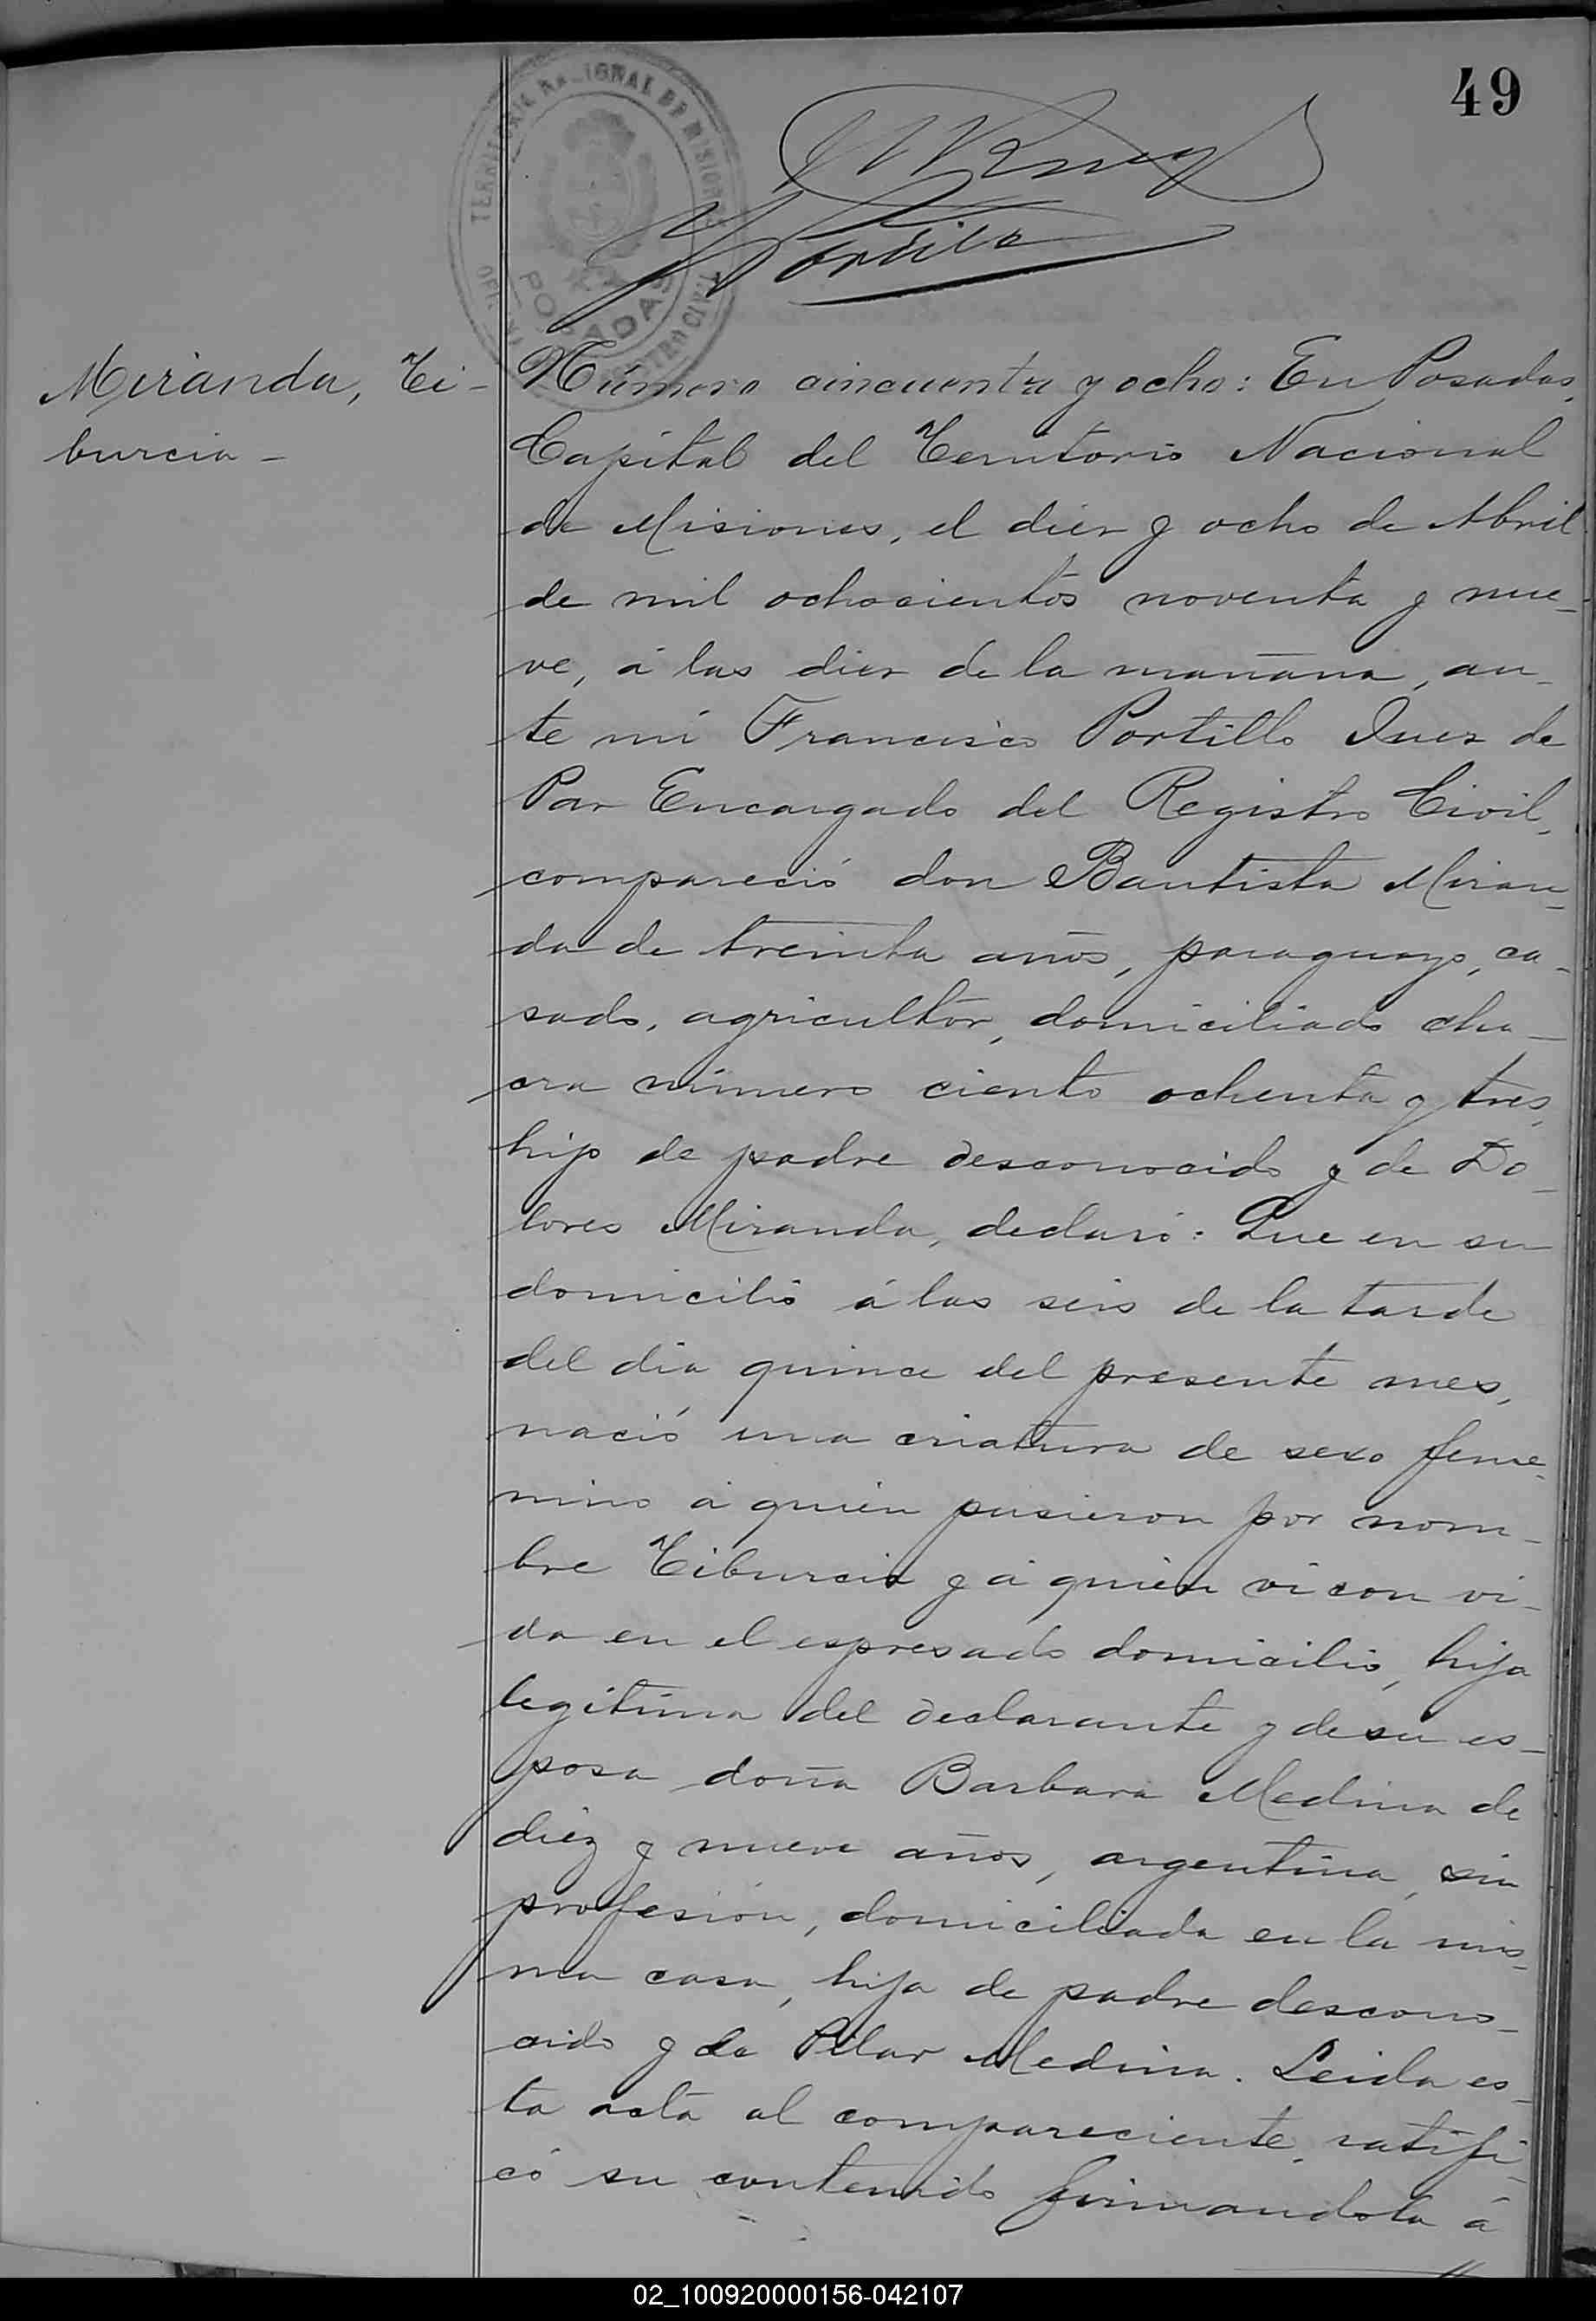 49
TERRITORIO NACIONAL DE MISIONES
POSADAS
REGISTRO CIVIL
Portillo
Miranda, Ti-
burcia -
Número cincuenta y ocho: En Posadas,
Capital del Territorio Nacional
de Misiones, el diez y ocho de Abril
de mil ochocientos noventa y nue-
ve, á las diez de la mañana, an-
te mí Francisco Portillo Juez de
Paz Encargado del Registro Civil,
compareció don Bautista Miran-
da de treinta años, paraguayo, ca-
sado, agricultor, domiciliado cha-
cra número ciento ochenta y tres,
hijo de padre desconocido y de Do-
lores Miranda, declaró: Que en su
domicilio á las seis de la tarde
del dia quince del presente mes,
nació una criatura de sexo feme-
nino á quien pusieron por nom-
bre Tiburcia y á quien vi con vi-
da en el espresado domicilio, hija
legítima del declarante y de su es-
posa doña Barbara Medina de
diez y nueve años, argentina, sin
profesión, domiciliada en la mis-
ma casa, hija de padre descono-
cido y de Pilar Medina. Leida es-
ta acta al compareciente, ratifi-
có su contenido firmandola á
02_100920000156-042107